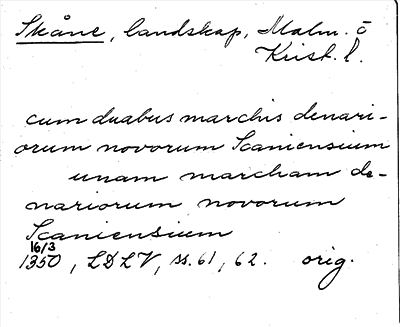 Skåne, landskap, Malm. ö
Krist. l.
cum duabus marchis denari-
orum novorum Scaniensium
unam marcham de-
nariorum novorum
Scaniensium
16/3
1350, LDLV, ss. 61, 62. orig.